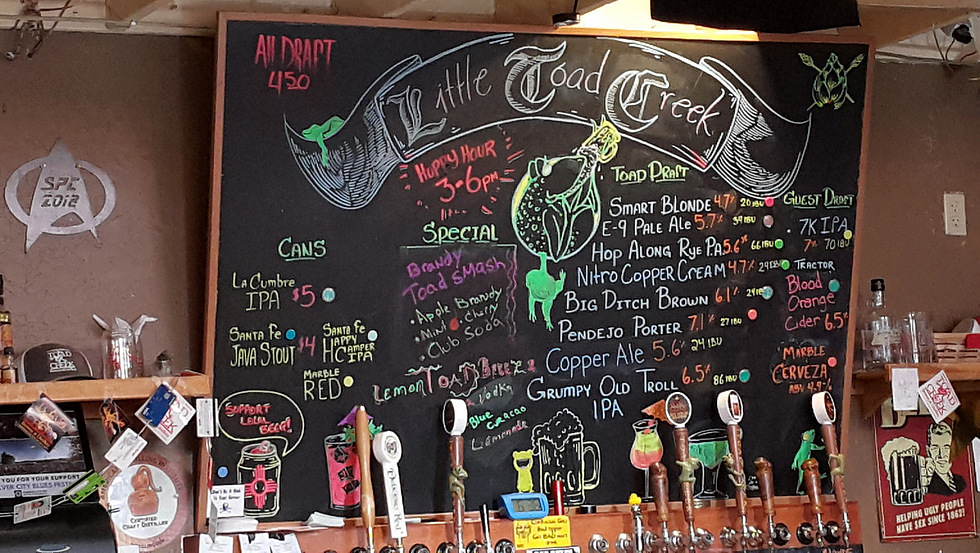 All DRAFT
4.50
Little Toad Creek
HOPPY HOUR
3-6pm
SPECIAL
Brandy
Toad SMASH
• Apple Brandy
• Mint • Cherry
• Club Soda
Lemon TOAD Breeze
Vodka
Blue Curacao
Lemonade
CANS
La Cumbre
IPA $5
SANTA FE
JAVA STOUT $4
SANTA FE
HAPPY
CAMPER
IPA
MARBLE
RED
SUPPORT
LOCAL
BEER!
TOAD DRAFT
SMART BLONDE 4.7% 20 IBU
E-9 PALE ALE 5.7% 39 IBU
HOP ALONG RYE P.A. 5.6% 66 IBU
NITRO COPPER CREAM 4.7% 24 IBU
BIG DITCH BROWN 6.1% 24 IBU
PENDEJO PORTER 7.1% 27 IBU
COPPER ALE 5.6% 24 IBU
GRUMPY OLD TROLL 6.5% 86 IBU
IPA
GUEST DRAFT
• 7K IPA
7% 70 IBU
• TRACTOR
Blood
Orange
Cider 6.5%
• MARBLE
CERVEZA
ABV 4.9%
SPC
2012
TOAD
CREEK
YOU FOR YOUR SUPPORT
VER CITY BLUES FEST
CERTIFIED
CRAFT DISTILLER
HELPING UGLY PEOPLE
HAVE SEX SINCE 1862!